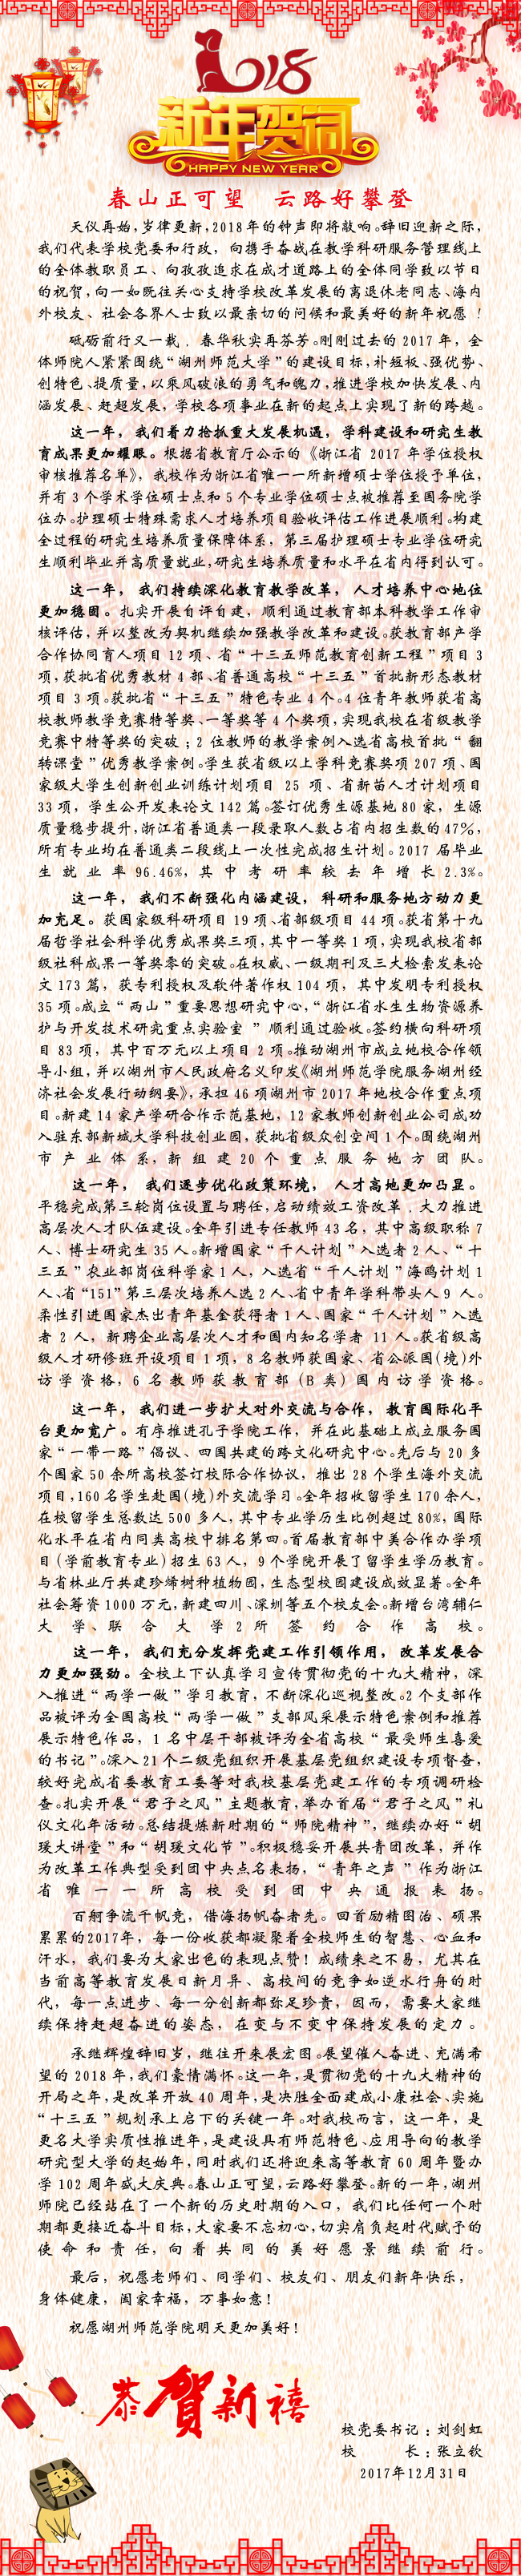 2018
新年贺词
HAPPY NEW YEAR
春山正可望 云路好攀登
天仪再始,岁律更新,2018年的钟声即将敲响。辞旧迎新之际,
我们代表学校党委和行政，向携手奋战在教学科研服务管理线上
的全体教职员工、向孜孜追求在成才道路上的全体同学致以节日
的祝贺,向一如既往关心支持学校改革发展的离退休老同志、海内
外校友、社会各界人士致以最亲切的问候和最美好的新年祝愿！
砥砺前行又一载．春华秋实再芬芳。刚刚过去的 2017 年，全
体师院人紧紧围绕“湖州师范大学”的建设目标,补短板、强优势、
创特色、提质量,以乘风破浪的勇气和魄力,推进学校加快发展、内
涵发展、赶超发展,学校各项事业在新的起点上实现了新的跨越。
这一年，我们着力抢抓重大发展机遇，学科建设和研究生教
育成果更加耀眼。根据省教育厅公示的《浙江省 2017 年学位授权
审核推荐名单》，我校作为浙江省唯一一所新增硕士学位授予单位,
并有 3 个学术学位硕士点和 5 个专业学位硕士点被推荐至国务院学
位办。护理硕士特殊需求人才培养项目验收评估工作进展顺利。构建
全过程的研究生培养质量保障体系，第三届护理硕士专业学位研究
生顺利毕业并高质量就业,研究生培养质量和水平在省内得到认可。
这一年， 我们持续深化教育教学改革， 人才培养中心地位
更加稳固。扎实开展自评自建，顺利通过教育部本科教学工作审
核评估,并以整改为契机继续加强教学改革和建设。获教育部产学
合作协同育人项目 12 项、省“十三五师范教育创新工程”项目 3
项,获批省优秀教材 4 部、省普通高校“十三五”首批新形态教材
项目 3 项。获批省“十三五”特色专业 4 个。4 位青年教师获省高
校教师教学竞赛特等奖、一等奖等 4 个奖项,实现我校在省级教学
竞赛中特等奖的突破；2 位教师的教学案例入选省高校首批“翻
转课堂”优秀教学案例。学生获省级以上学科竞赛奖项 207 项、国
家级大学生创新创业训练计划项目 25 项、省新苗人才计划项目
33 项，学生公开发表论文 142 篇。签订优秀生源基地 80 家，生源
质量稳步提升,浙江省普通类一段录取人数占省内招生数的 47%,
所有专业均在普通类二段线上一次性完成招生计划。2017 届毕业
生就业率 96.46%,其中考研率较去年增长 2.3%。
这一年，我们不断强化内涵建设，科研和服务地方动力更
加充足。获国家级科研项目 19 项、省部级项目 44 项。获省第十九
届哲学社会科学优秀成果奖三项,其中一等奖 1 项,实现我校省部
级社科成果一等奖零的突破。在权威、一级期刊及三大检索发表论
文 173 篇，获专利授权及软件著作权 104 项，其中发明专利授权
35 项。成立“两山”重要思想研究中心,“浙江省水生生物资源养
护与开发技术研究重点实验室 ”顺利通过验收。签约横向科研项
目 83 项，其中百万元以上项目 2 项。推动湖州市成立地校合作领
导小组，并以湖州市人民政府名义印发《湖州师范学院服务湖州经
济社会发展行动纲要》,承担 46 项湖州市 2017 年地校合作重点项
目。新建 14 家产学研合作示范基地，12 家教师创新创业公司成功
入驻东部新城大学科技创业园,获批省级众创空间 1 个。围绕湖州
市产业体系,新组建 20 个重点服务地方团队。
这一年， 我们逐步优化政策环境， 人才高地更加凸显。
平稳完成第三轮岗位设置与聘任,启动绩效工资改革．大力推进
高层次人才队伍建设。全年引进专任教师 43 名，其中高级职称 7
人、博士研究生 35 人。新增国家“千人计划”入选者 2 人、“十
三五”农业部岗位科学家 1 人，入选省“千人计划”海鸥计划 1
人、省“151”第三层次培养人选 2 人、省中青年学科带头人 9 人。
柔性引进国家杰出青年基金获得者 1 人、国家“千人计划”入选
者 2 人，新聘企业高层次人才和国内知名学者 11 人。获省级高
级人才研修班开设项目 1 项，8 名教师获国家、省公派国(境)外
访学资格，6 名教师获教育部 (B 类) 国内访学资格。
这一年，我们进一步扩大对外交流与合作，教育国际化平
台更加宽广。有序推进孔子学院工作，并在此基础上成立服务国
家“一带一路”倡议、四国共建的跨文化研究中心。先后与 20 多
个国家 50 余所高校签订校际合作协议，推出 28 个学生海外交流
项目,160 名学生赴国(境)外交流学习。全年招收留学生 170 余人,
在校留学生总数达 500 多人,其中专业学历生比例超过 80%,国际
化水平在省内同类高校中排名第四。首届教育部中美合作办学项
目(学前教育专业)招生 63 人，9 个学院开展了留学生学历教育。
与省林业厅共建珍稀树种植物园,生态型校园建设成效显著。全年
社会筹资 1000 万元,新建四川、深圳等五个校友会。新增台湾辅仁
大学、联合大学 2 所签约合作高校。
这一年，我们充分发挥党建工作引领作用，改革发展合
力更加强劲。全校上下认真学习宣传贯彻党的十九大精神，深
入推进“两学一做”学习教育，不断深化巡视整改。2 个支部作
品被评为全国高校“两学一做”支部风采展示特色案例和推荐
展示特色作品，1 名中层干部被评为全省高校“最受师生喜爱
的书记”。深入 21 个二级党组织开展基层党组织建设专项督查,
较好完成省委教育工委等对我校基层党建工作的专项调研检
查。扎实开展“君子之风”主题教育,举办首届“君子之风”礼
仪文化年活动。总结提炼新时期的“师院精神”,继续办好“胡
瑗大讲堂”和“胡瑗文化节”。积极稳妥开展共青团改革，并作
为改革工作典型受到团中央点名表扬，“青年之声”作为浙江
省唯一一所高校受到团中央通报表扬。
百舸争流千帆竞，借海扬帆奋者先。回首励精图治、硕果
累累的2017年，每一份收获都凝聚着全校师生的智慧、心血和
汗水，我们要为大家出色的表现点赞！成绩来之不易，尤其在
当前高等教育发展日新月异、高校间的竞争如逆水行舟的时
代，每一点进步、每一分创新都弥足珍贵，因而，需要大家继
续保持赶超奋进的姿态，在变与不变中保持发展的定力。
承继辉煌辞旧岁，继往开来展宏图。展望催人奋进、充满希
望的 2018 年,我们豪情满怀。这一年,是贯彻党的十九大精神的
开局之年,是改革开放 40 周年,是决胜全面建成小康社会、实施
“十三五”规划承上启下的关键一年。对我校而言，这一年，是
更名大学实质性推进年,是建设具有师范特色、应用导向的教学
研究型大学的起始年,同时我们还将迎来高等教育 60 周年暨办
学 102 周年盛大庆典。春山正可望,云路好攀登。新的一年,湖州
师院已经站在了一个新的历史时期的入口，我们比任何一个时
期都更接近奋斗目标,大家要不忘初心,切实肩负起时代赋予的
使命和责任,向着共同的美好愿景继续前行。
最后，祝愿老师们、同学们、校友们、朋友们新年快乐，
身体健康，阖家幸福，万事如意！
祝愿湖州师范学院明天更加美好！
恭贺新禧
校党委书记：刘剑虹
校 长：张立钦
2017年12月31日